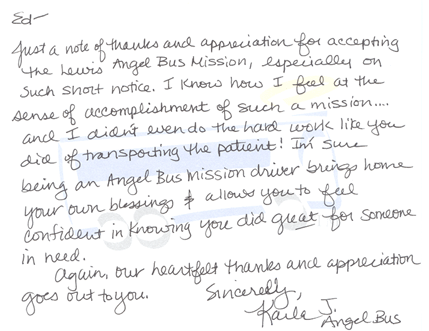 Ed-
Just a note of thanks and appreciation for accepting
the Lewis Angel Bus Mission, especially on
such short notice. I know how I feel at the
sense of accomplishment of such a mission....
and I didn't even do the hard work like you
did of transporting the patient! I'm sure
being an Angel Bus Mission driver brings home
your own blessings & allows you to feel
confident in knowing you did great for someone
in need.
Again, our heartfelt thanks and appreciation
goes out to you.
Sincerely,
Karla J.
Angel Bus